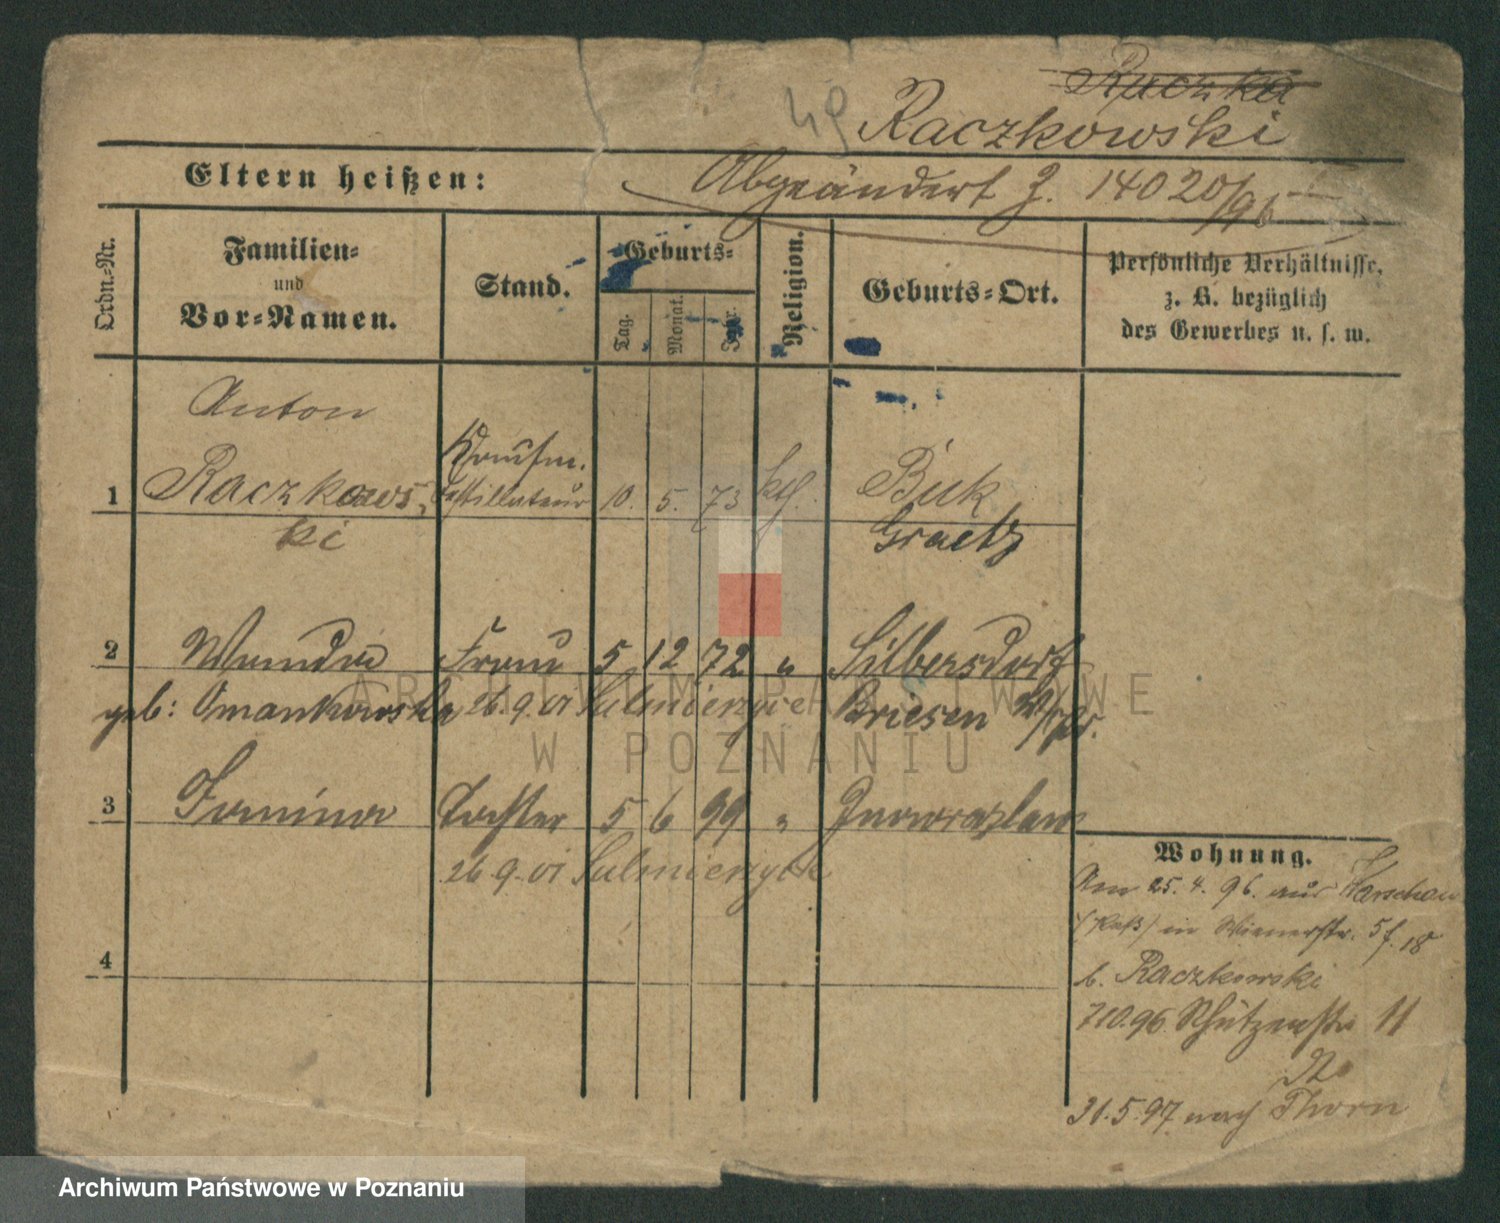 Raczka
49 Raczkowski
Eltern heißen:
Abgeändert J. 14020/96
Ordn.-Nr.
Familien-
und
Vor-Namen.
Stand.
Geburts-
Tag.
Monat.
Jahr.
Religion.
Geburts-Ort.
Persönliche Verhältnisse,
z. B. bezüglich
des Gewerbes u. s. w.
Anton
Kaufm.
1 Raczkows- Destillateur 10. 5. 73 kth. Buk
ki Graetz
2 Wanda Frau 5 12 72 " Silbersdorf
geb: Omankowska 26.9.01 Sulmierzyce Briesen W/Pr.
3 Janina Tochter 5 6 99 " Inowrazlaw
26.9.01 Sulmierzyce
4
Wohnung.
Am 25.4.96. aus Warschau
(Paß) in Wienerstr. 5 f. 18
b. Raczkowski
7.10.96. Schützenstr 11
31.5.97 nach Thorn
ARCHIWUM PAŃSTWOWE
W POZNANIU
Archiwum Państwowe w Poznaniu